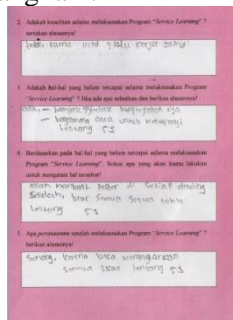 2. Adakah kesulitan selama melaksanakan Program "Service Learning" ?
sertakan alasannya!
karna kita selalu kerja sama
3. Adakah hal-hal yang belum tercapai selama melaksanakan Program
"Service Learning" ? Jika ada apa sebutkan dan berikan alasannya!
- bagaimana cara untuk
tentang 5S
4. Berdasarkan pada hal-hal yang belum tercapai selama melaksanakan
Program "Service Learning". Solusi apa yang akan kamu lakukan
untuk mengatasi hal tersebut!
akan membuat Poster di setiap dinding
biar semua siswa tahu
tentang 5S
5. Apa perasaanmu setelah melaksanakan Program "Service Learning" ?
berikan alasannya!
Senang, karna bisa
semua siswa tentang 5S